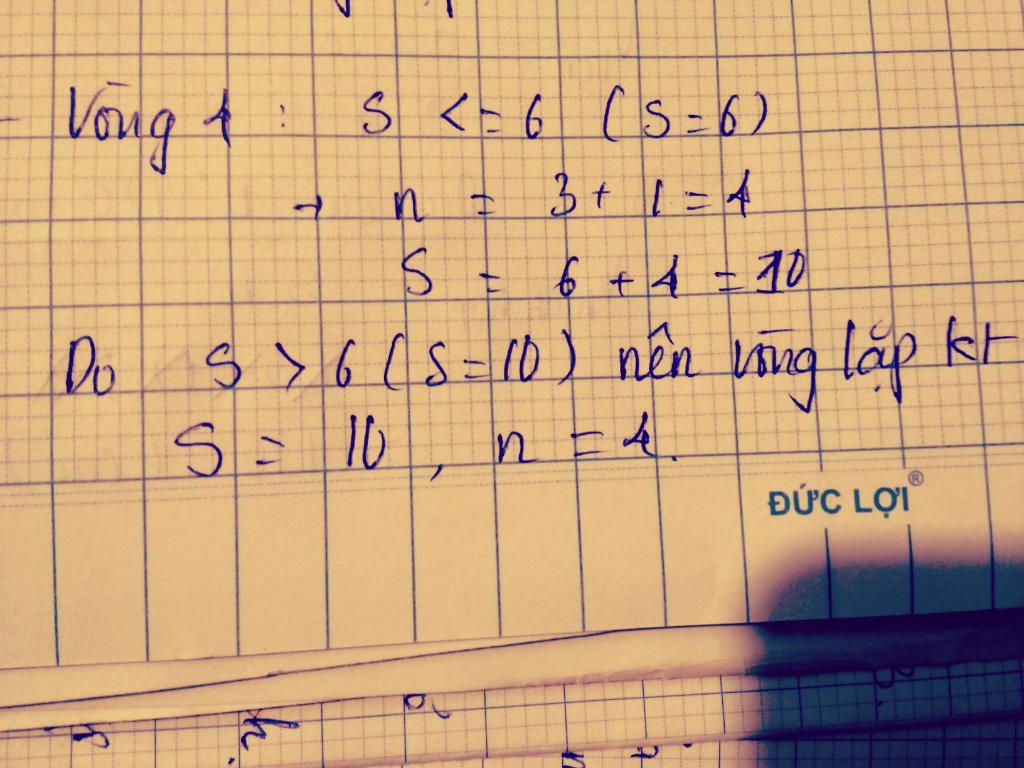 - Vòng 4 : S <= 6 (S=6)
→ n = 3 + 1 = 4
S = 6 + 4 = 10
Do S > 6 (S=10) nên vòng lặp kt
S = 10, n = 4.
ĐỨC LỢI®